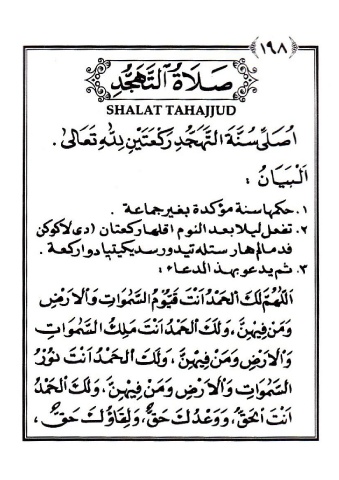 ١٩٨
صَلَاةُ التَّهَجُّدِ
SHALAT TAHAJJUD
اُصَلِّى سُنَّةَ التَّهَجُّدِ رَكْعَتَيْنِ لِلّٰهِ تَعَالٰى .
اَلْبَيَانُ :
١. حكمها سنة مؤكدة بغير جماعة .
٢. تفعل ليلا بعد النوم اقلها ركعتان (دى لاكوكن
فد مالم هارى ستله تيدور سديكيتيا دوا ركعة .
٣. ثم يدعو بهذ الدعاء :
اَللّٰهُمَّ لَكَ الْحَمْدُ اَنْتَ قَيُّومُ السَّمٰوَاتِ وَالْاَرْضِ
وَمَنْ فِيْهِنَّ، وَلَكَ الْحَمْدُ اَنْتَ مَلِكُ السَّمٰوَاتِ
وَالْاَرْضِ وَمَنْ فِيْهِنَّ، وَلَكَ الْحَمْدُ اَنْتَ نُوْرُ
السَّمٰوَاتِ وَالْاَرْضِ وَمَنْ فِيْهِنَّ، وَلَكَ الْحَمْدُ
اَنْتَ الْحَقُّ، وَوَعْدُكَ حَقٌّ، وَلِقَاؤُكَ حَقٌّ،